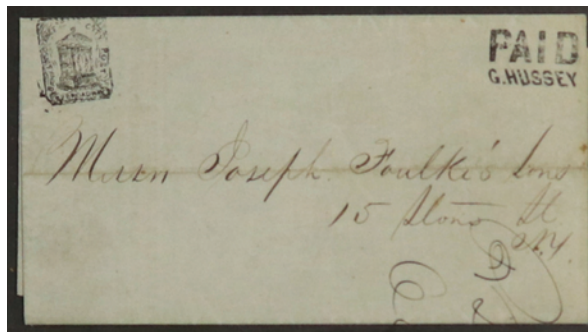 PAID
G. HUSSEY
Messrs Joseph Foulke's Sons
15 Stone St
N.Y.